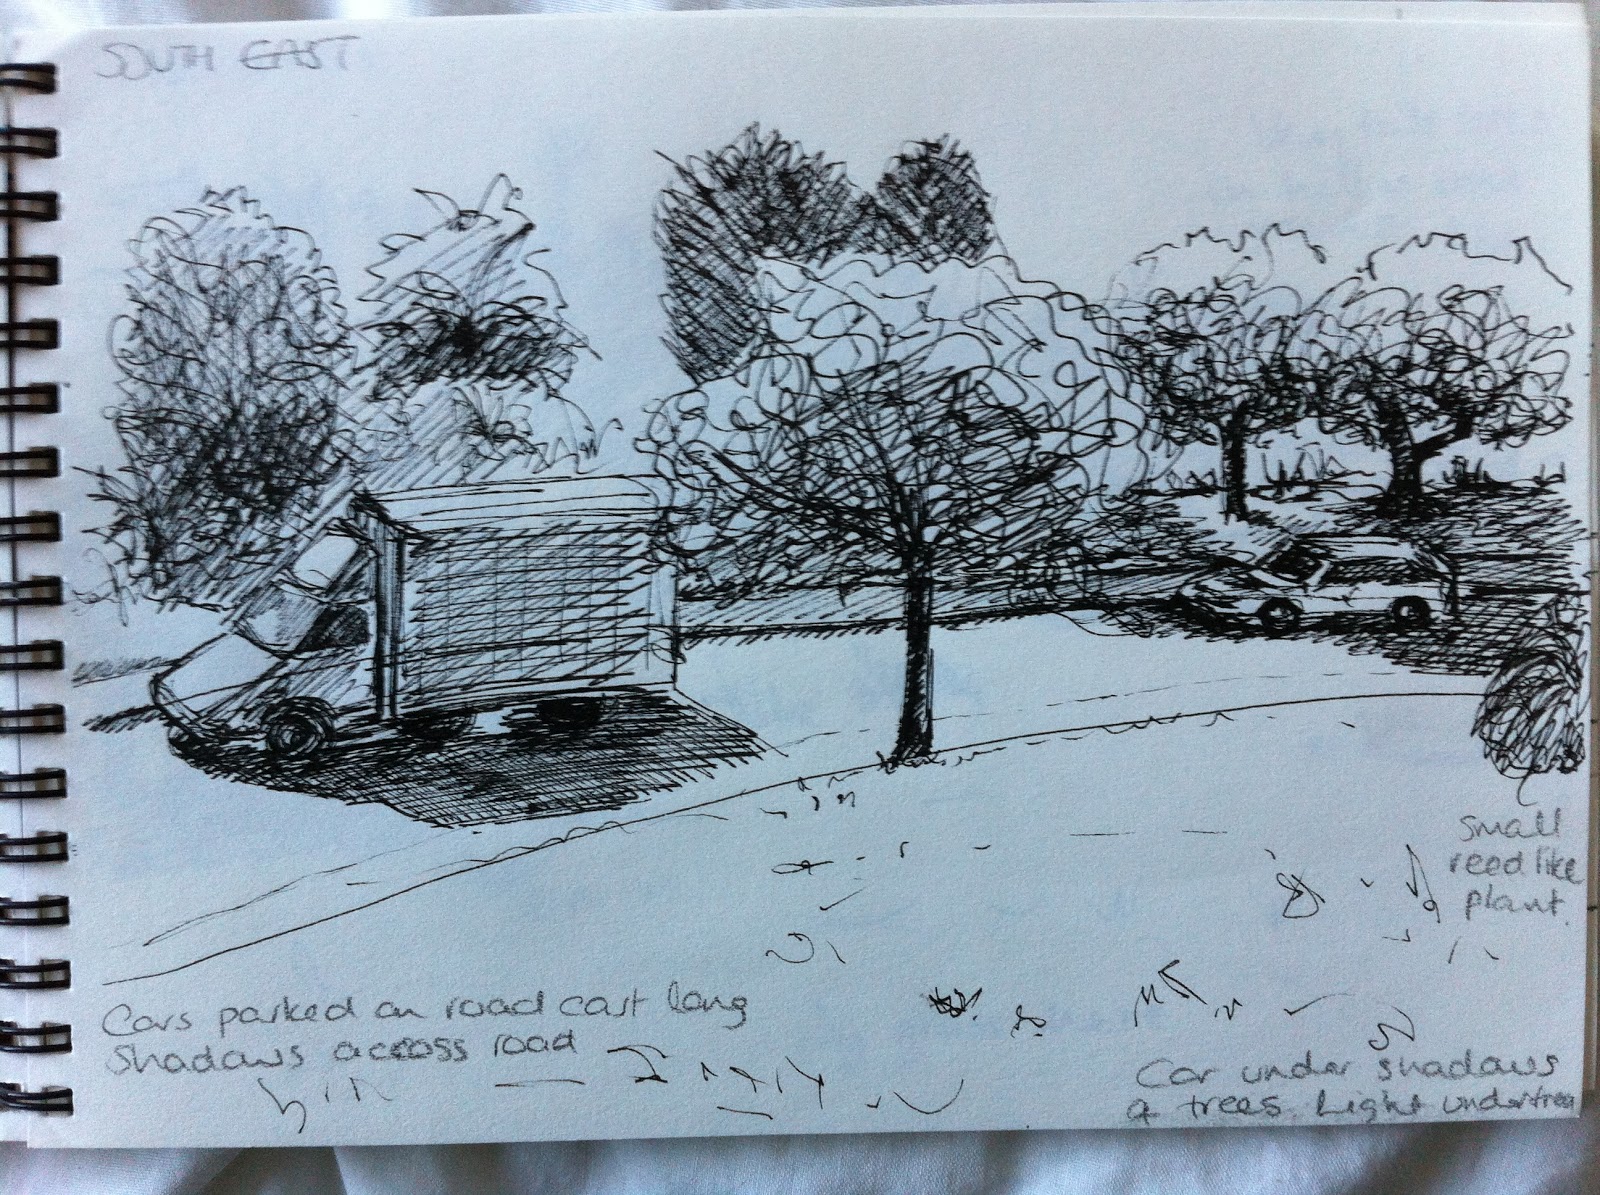 SOUTH EAST
small
reed like
plant.
Cars parked on road cast long
shadows across road
Car under shadows
of trees. Light under tree